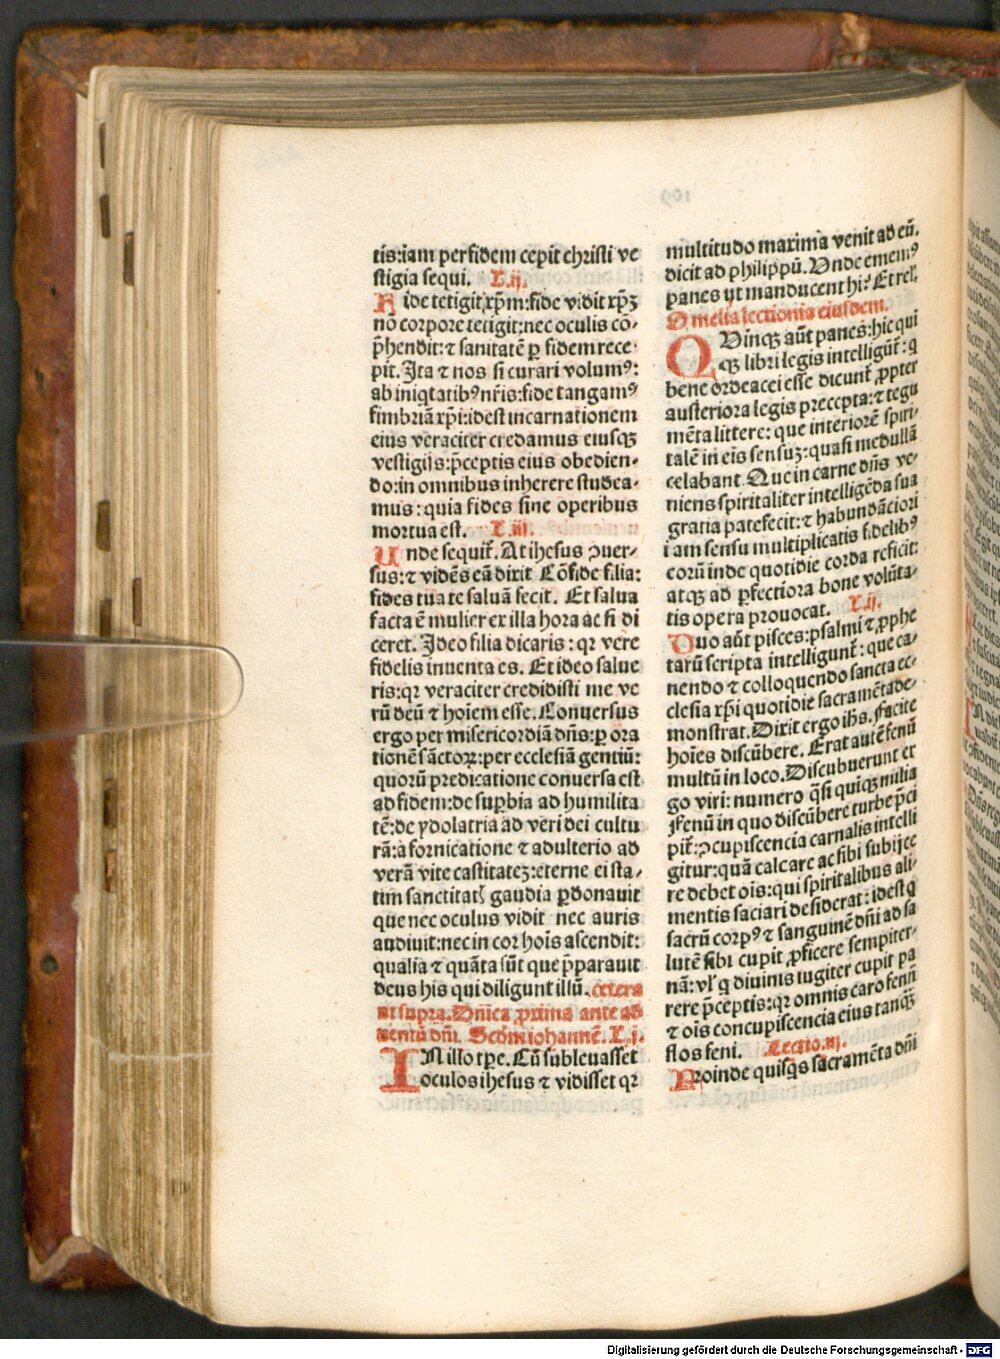 tis:iam per fidem cepit christi ve
stigia sequi. L.ij.
Fide tetigit xp̄m:fide vidit xp̄ꝫ
nō corpore tetigit:nec oculis cō-
p̄hendit:⁊ sanitatē ꝑ fidem rece-
pit. Ita ⁊ nos si curari volumꝰ:
ab iniq̇tatibꝰ nr̄is:fide tangamꝰ
fimbriā xp̄i:idest incarnationem
eius veraciter credamus eiusqꝫ
vestigijs:p̄ceptis eius obedien-
do:in omnibus inherere studea-
mus:quia fides sine operibus
mortua est. L.iij.
Unde sequit̄. At ihesus ↄuer-
sus:⁊ vidēs eā dixit Cōfide filia:
fides tua te saluā fecit. Et salua
facta ē mulier ex illa hora ac si di
ceret. Ideo filia dicaris:qꝛ vere
fidelis inuenta es. Et ideo salue
ris:qꝛ veraciter credidisti me ve
rū deū ⁊ hoīem esse. Conuersus
ergo per misericordiā dn̄s:ꝑ ora
tionē sāctoꝝ:per ecclesiā gentiū:
quorū predicatione conuersa est
ad fidem:de suꝑbia ad humilita
tē:de ydolatria ad veri dei cultu
rā:a fornicatione ⁊ adulterio ad
verā vite castitateꝫ:eterne ei sta-
tim sanctitatꝭ gaudia ꝑdonauit
que nec oculus vidit nec auris
audiuit:nec in cor hoīs ascendit:
qualia ⁊ quāta sūt que p̄parauit
deus his qui diligunt illū. cetera
ut supra. Dn̄ica ꝓxima ante ad
uentū dn̄i. Scd̄m iohannē. L.j.
IN illo tꝑe. Cū subleuasset
oculos ihesus ⁊ vidisset qꝛ
multitudo maxima venit ad eū.
dicit ad philippū. Unde ememꝰ
panes vt manducent hi? Et rel̄.
Omelia lectionis eiusdem.
QUinqꝫ aūt panes:hic qui
qꝫ libri legis intelligūt̄:q
bene ordeacei esse dicunt̄ ꝓpter
austeriora legis precepta:⁊ tegu
mēta littere:que interiorē spiri-
talē in eis sensuꝫ:quasi medullā
celabant. Que in carne dn̄s ve-
niens spiritaliter intelligēda sua
gratia patefecit:⁊ habundāciori
iam sensu multiplicatis fidelibꝰ
corū inde quotidie corda reficit:
atqꝫ ad ꝑfectiora bone volūta-
tis opera prouocat. L.ij.
Duo aūt pisces:psalmi ⁊ ꝓphe
tarū scripta intelligunt̄:que ca-
nendo ⁊ colloquendo sancta ec-
clesia xp̄i quotidie sacramēta de-
monstrat. Dixit ergo ih̄s. Facite
hoīes discūbere. Erat autē fenū
multū in loco. Discubuerunt er
go viri:numero q̄si quiqꝫ milia
Fenū in quo discūbere turbe p̄ci
pit̄:ↄcupiscencia carnalis intelli
gitur:quā calcare ac sibi subijce
re debet ois:qui spiritalibus ali-
mentis saciari desiderat:idest q
sacrū corpꝰ ⁊ sanguinē dn̄i ad sa
lutē sibi cupit ꝓficere sempiter-
nā:vl̓ q diuinis iugiter cupit pa
rere p̄ceptis:qꝛ omnis caro fenū
⁊ ois concupiscencia eius tanqꝫ
flos feni. Lectio.iij.
Proinde quisq̇s sacramēta dn̄i
Digitalisierung gefördert durch die Deutsche Forschungsgemeinschaft - DFG